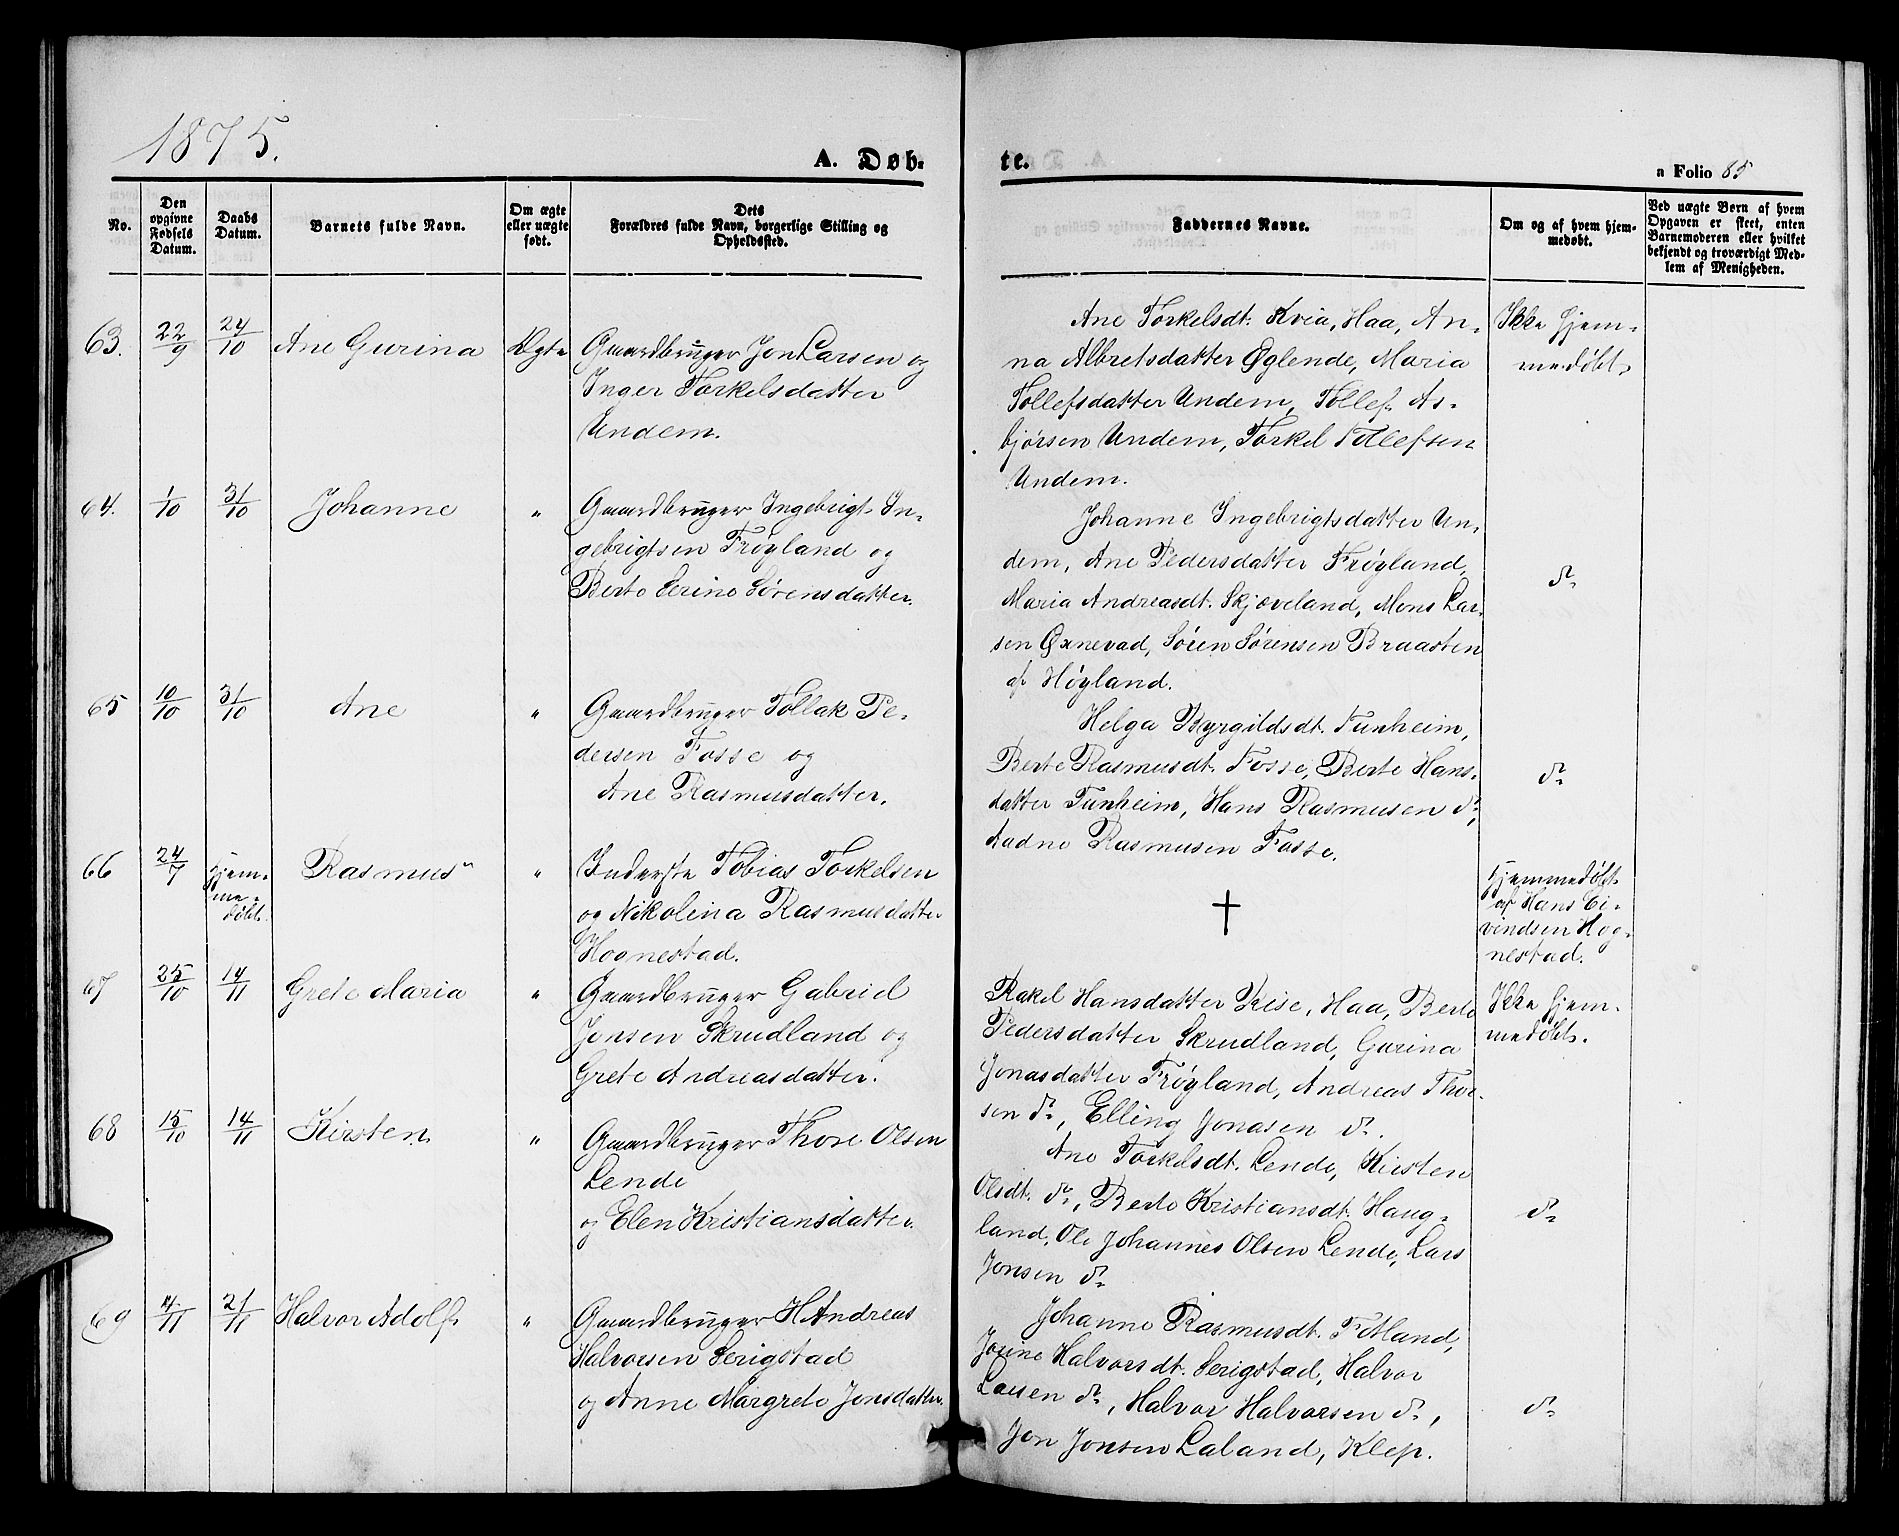 1875.
A. Døb-
te.
a Folio 85
No.
Den opgivne Fødsels Datum.
Daabs Datum.
Barnets fulde Navn.
Om ægte eller uægte født.
Dets Forældres fulde Navn, borgerlige Stilling og Opholdssted.
Faddernes Navne.
Om og af hvem hjemmedøbt.
Ved uægte Børn af hvem Opgaven er skeet, enten Barnemoderen eller hvilket bekjendt og troværdigt Medlem af Menigheden.
63. 22/9 24/10 Ane Gurina Ægte
Gaardbruger Jon Larsen og
Inger Torkelsdatter
Undem.
Ane Torkelsdt. Kvia, Haa, An-
na Albretsdatter Øglende, Maria
Tollefsdatter Undem, Tollef As-
bjørsen Undem, Torkel Tollefsen
Undem.
Ikke hjem-
medøbt.
64. 1/10 31/10 Johanne "
Gaardbruger Ingebrigt In-
gebrigtsen Frøyland og
Berte Serine Sørensdatter.
Johanne Ingebrigtsdatter Un-
dem, Ane Pedersdatter Frøyland,
Maria Andreasdt. Skjæveland, Mons Lar-
sen Øxnevad, Sören Sørensen Braasten
af Høyland.
do
65 10/10 31/10 Ane "
Gaardbruger Tollak Pe-
dersen Fosse og
Ane Rasmusdatter.
Helga Byrgildsdt. Tunheim,
Berte Rasmusdt. Fosse, Berte Hans-
datter Tunheim, Hans Rasmusen do,
Aadne Rasmusen Fosse.
do
66 24/7 Hjem-
me-
døbt.
Rasmus "
Inderste Tobias Torkelsen
og Nikolina Rasmusdatter
Hognestad.
†
Hjemmedøbt
af Hans Ei-
vindsen Hog-
nestad.
67 25/10 14/11 Grete Maria "
Gaardbruger Gabriel
Jonsen Skrudland og
Grete Andreasdatter.
Rakel Hansdatter Rise, Haa, Berte
Pedersdatter Skrudland, Gurina
Jonasdatter Frøyland, Andreas Thor-
sen do, Elling Jonasen do.
Ikke hjem-
medøbt.
68 15/10 14/11 Kirsten "
Gaardbruger Thore Olsen
Lende
og Elen Kristiansdatter.
Ane Torkelsdt. Lende, Kirsten
Olsdt. do, Berte Kristiansdt. Haug-
land, Ole Johannes Olsen Lende, Lars
Jonsen do
do
69 4/11 21/11 Halvor Adolf "
Gaardbruger H Andreas
Halvorsen Serigstad
og Anne Margrete Jonsdatter.
Johanne Rasmusdt. Fotland,
Josine Halvorsdt. Serigstad, Halvor
Larsen do, Halvor Halvorsen do,
Jon Jonsen Laland, Klep.
do